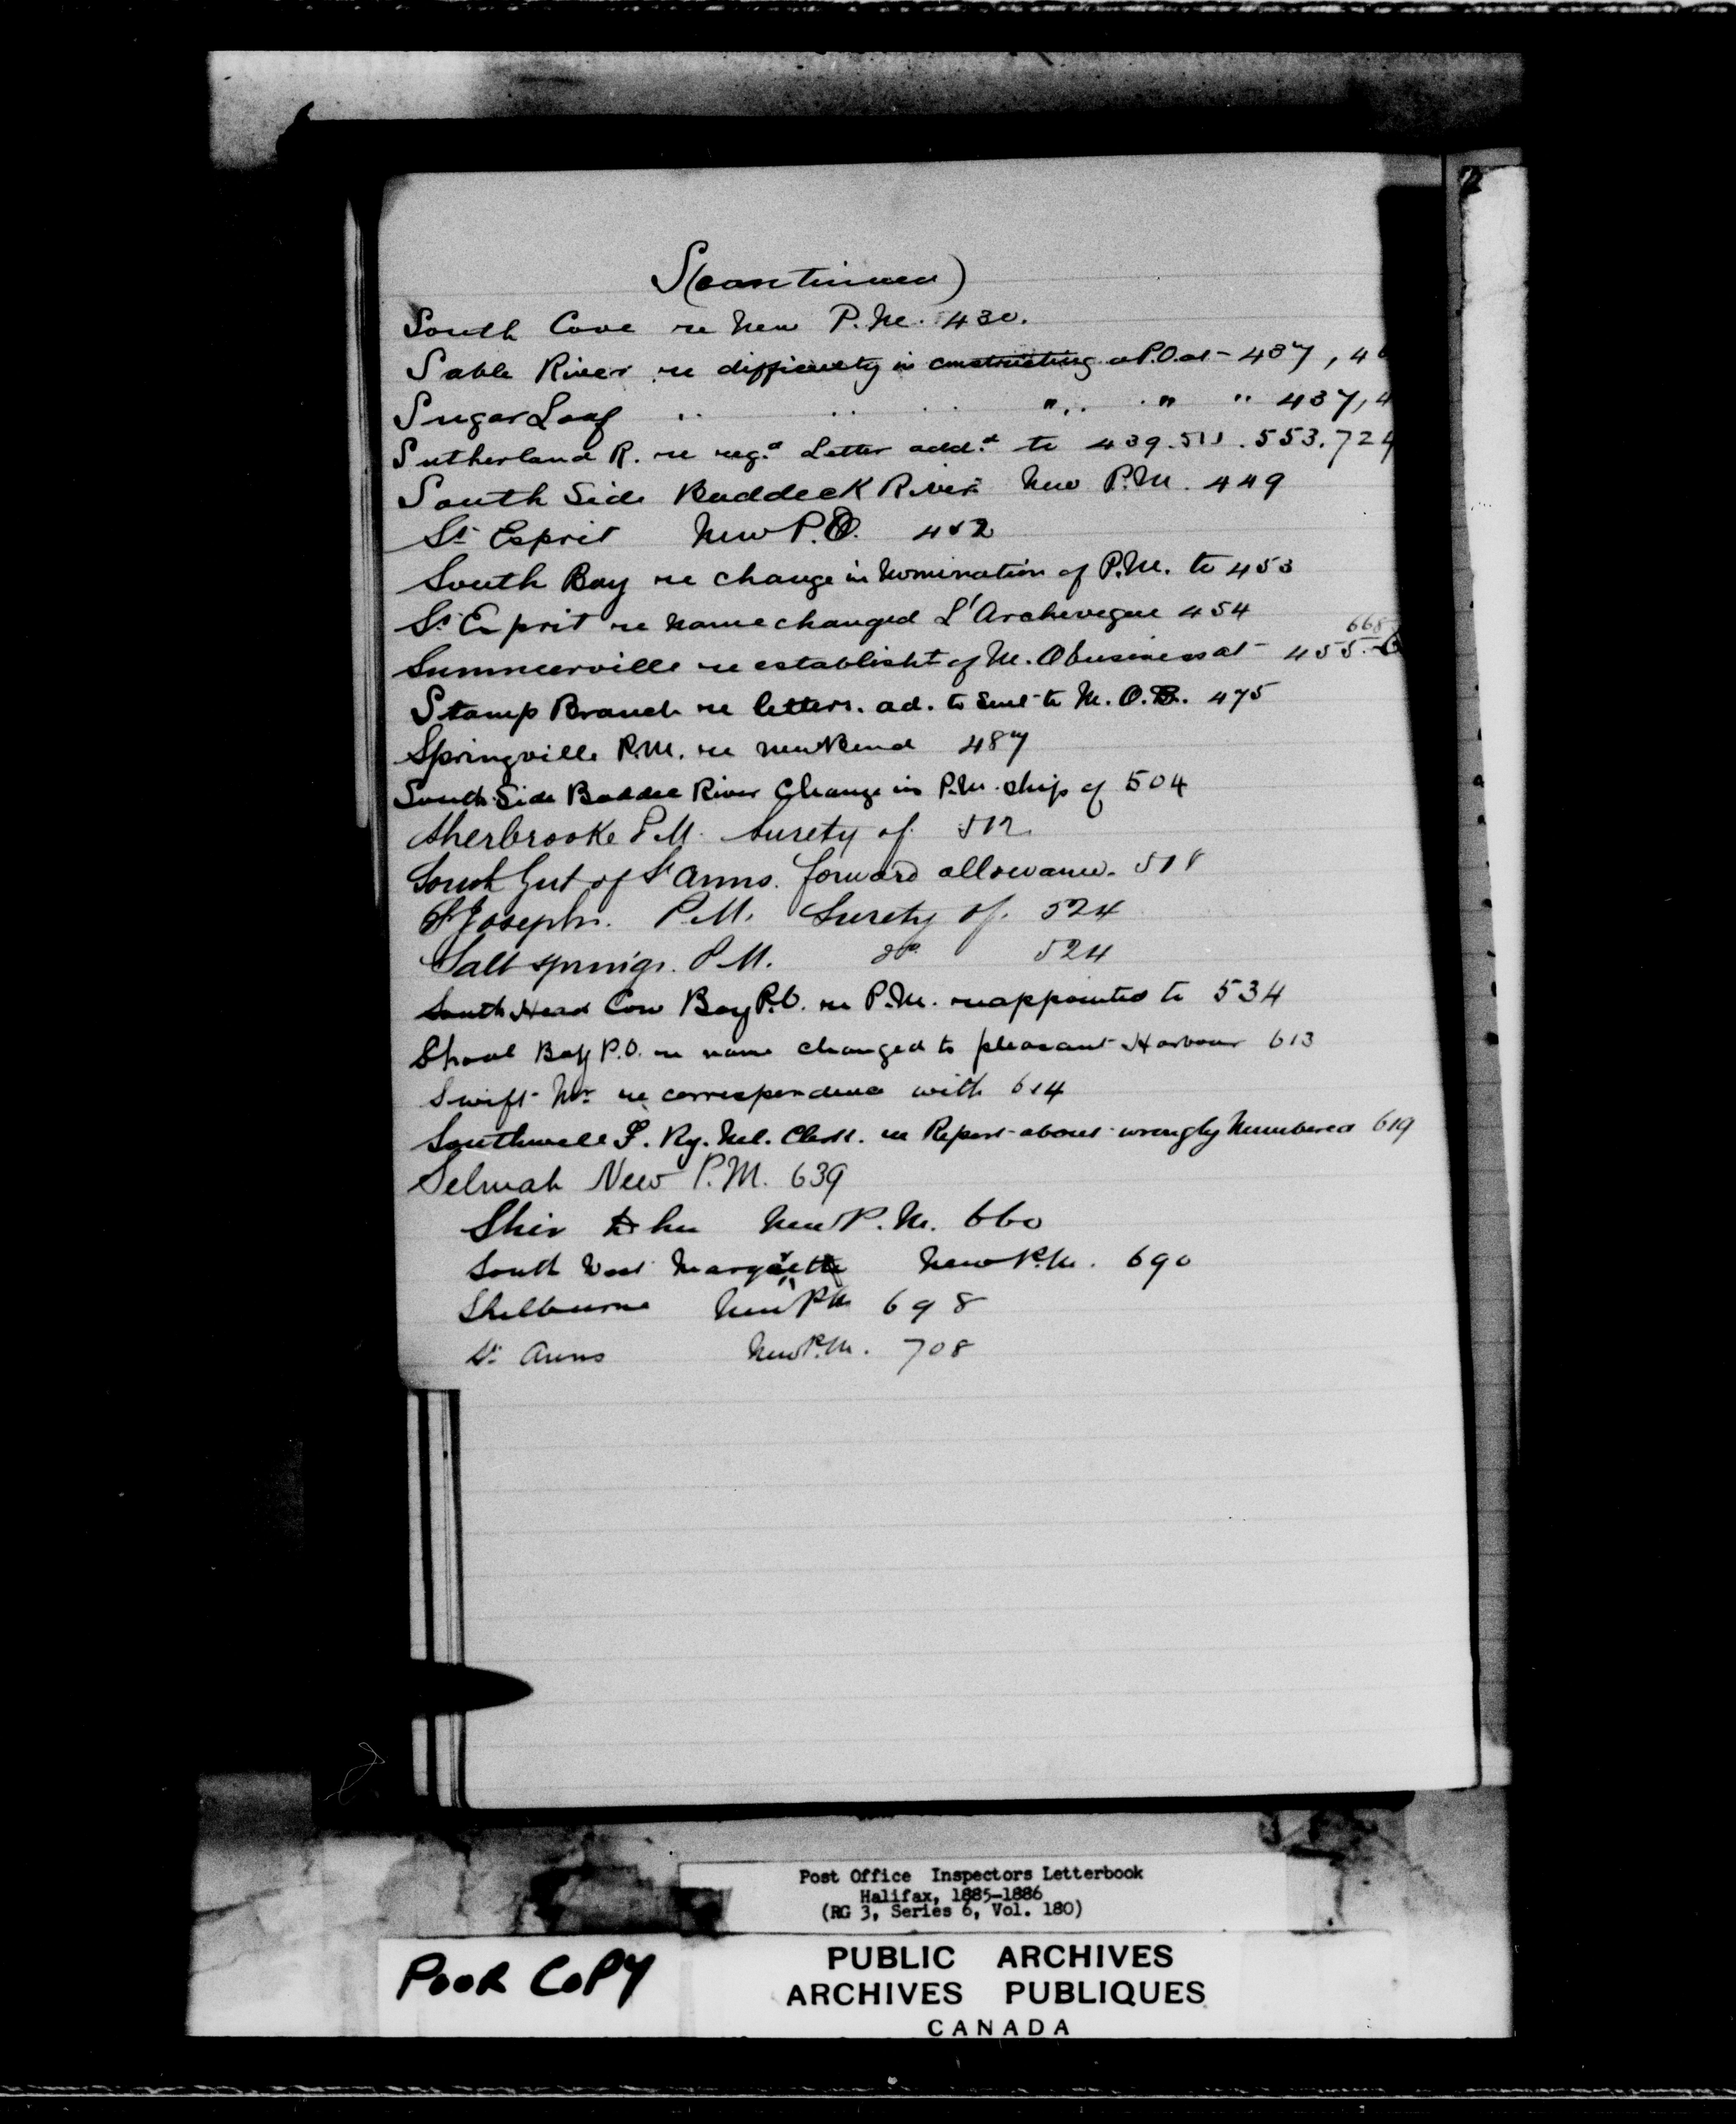 S (continued)
South Cove re New P.M. 430.
Sable River re difficulty in constructing a P.O. at - 437, 4
Sugar Loaf " " " " " " 437, 4
Sutherland R. re regd Letter addd to 439. 511. 553. 724
South Side Baddeck River New P.M. 449
St Esprit New P.O. 452
South Bay re change in Nomination of P.M. to 453
St Esprit re name changed L'Archeveque 454
Summerville re establisht of M. O business at - 455. 668
Stamp Branch re letters. ad. to sent to M. O. B. 475
Springville P.M. re new Bond 487
South Side Baddec River Change in P.M. ship of 504
Sherbrooke P.M. Surety of. 512.
South Gut of St Anns. forward allowance. 518
St Josephs. P.M. Surety of. 524
Salt springs. P.M. do 524
South Head Cow Bay P.O. re P.M. reappointed to 534
Shoal Bay P.O. re name changed to pleasant Harbour 613
Swift Mr re correspondence with 614
Southwell F. Ry. Ml. Clerk. re Report about wrongly Numbered 619
Selmah New P.M. 639
Shin New P.M. 660
South West Margaree New P.M. 690
Shelburne New P.M. 698
St Anns New P.M. 708
Post Office Inspectors Letterbook
Halifax, 1885-1886
(RG 3, Series 6, Vol. 180)
POOR COPY
PUBLIC ARCHIVES
ARCHIVES PUBLIQUES
CANADA